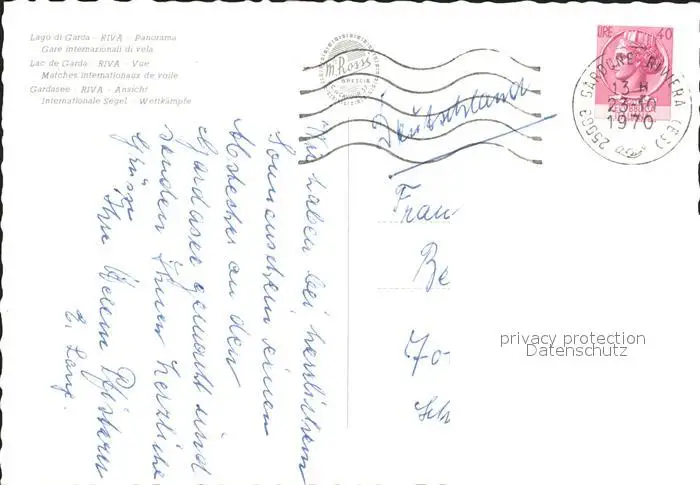 Lago di Garda - RIVA - Panorama
Gare internazionali di vela
Lac de Garda - RIVA - Vue
Matches internationaux de voile
Gardasee - RIVA - Ansicht
Internationale Segel - Wettkämpfe
m. Rossi
BRESCIA
LIRE 40
25083 GARDONE RIVIERA (BS)
13 H
23·10
1970
Deutschland
Frau
Be
70
Sch
Wir haben bei herrlichem
Sonnenschein einen
Abstecher an den
Gardasee gemacht und
senden Ihnen herzliche
Grüsse
Ihre
E. Lang.
privacy protection
Datenschutz